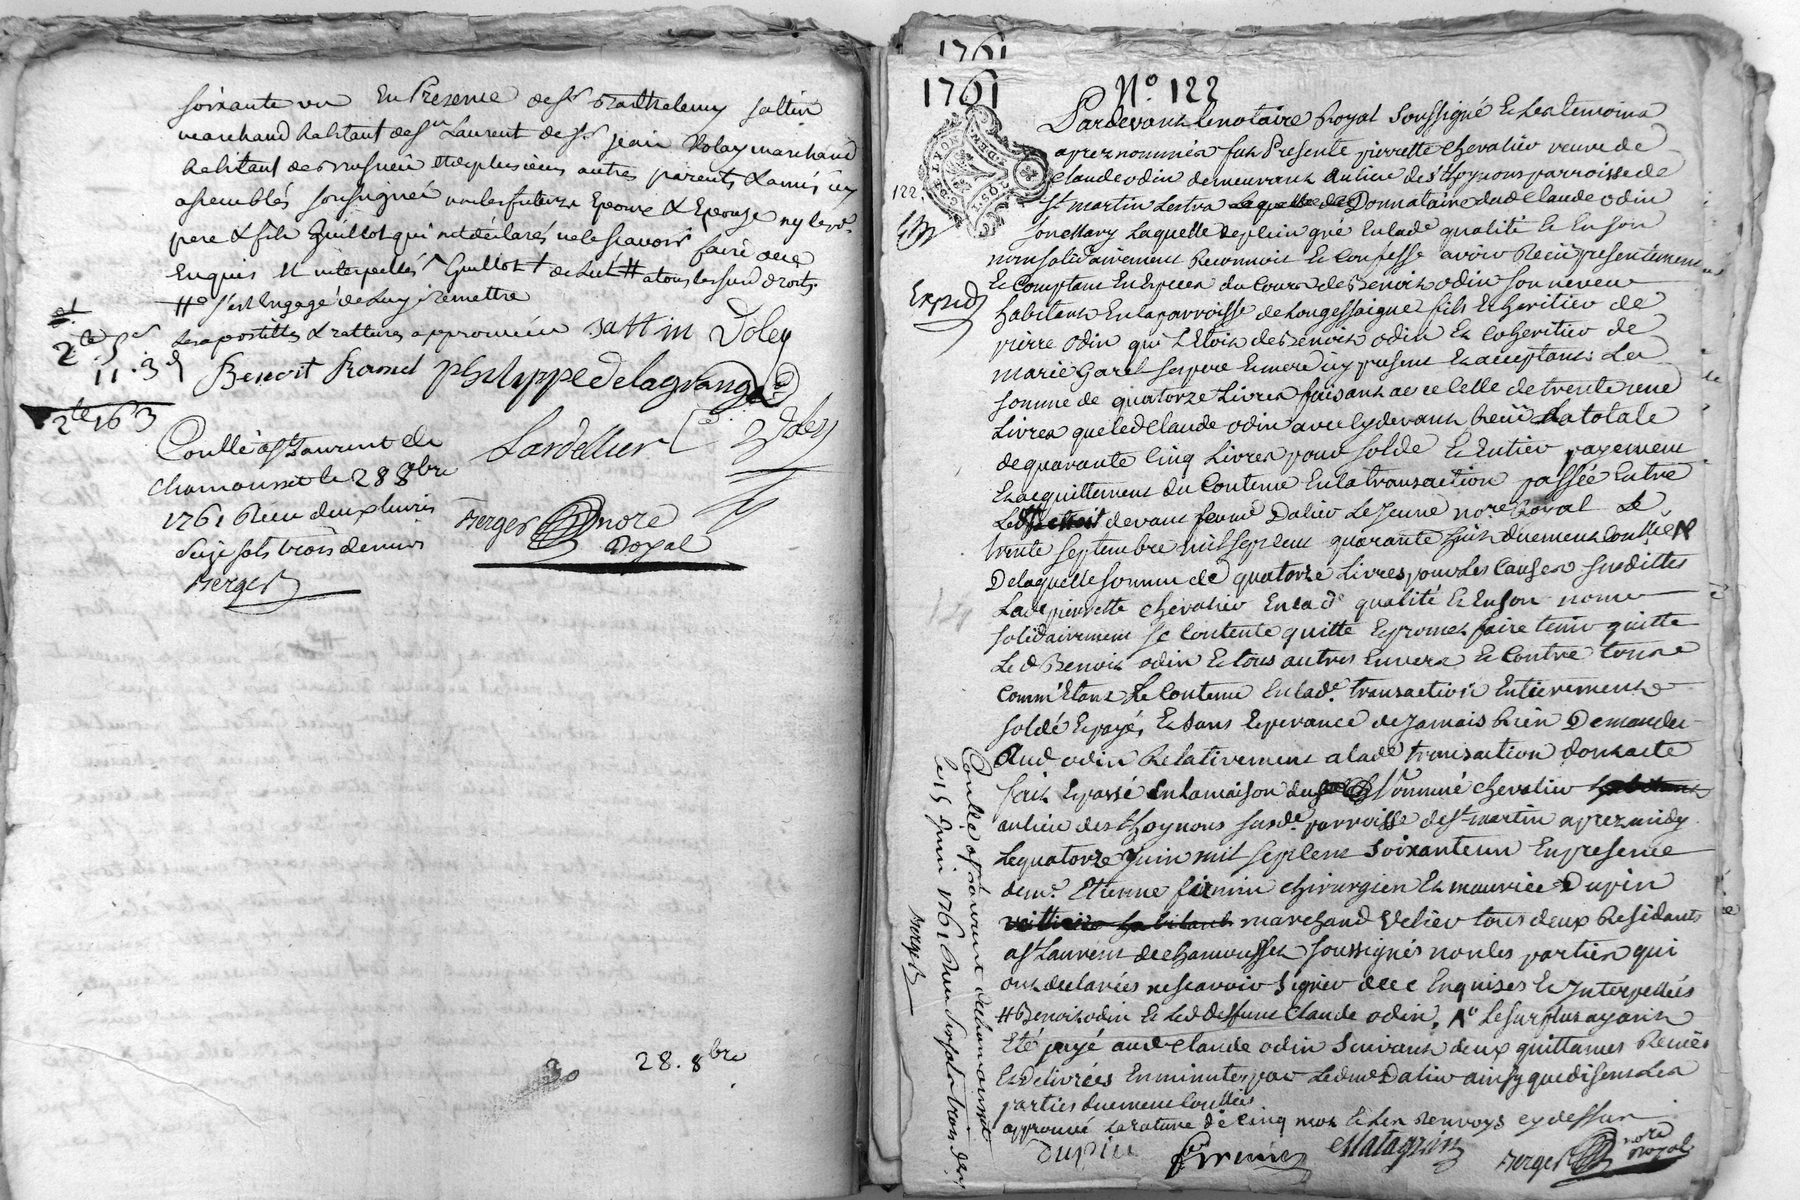 soixante un En Presence de Sr Barthelemy sattin
marchand habitant de St Laurent de Sr jean Dolay marchand
habitant de et de plusieurs autres parents & amis icy
assemblés soussignés non les futurs Epoux & Epouse ny les
pere & fils Guillot qui ont déclarés ne le scavoir faire de ce
Enquis et interpellés Guillot # a tous les sud droits
#o s'est Engagé de luy remettre
les apostilles & ratures approuvées sattin Doley
Benoit philippe delagrange
Lardellier Doley
2te 163
Conllé a St Laurent de
chamousset le 28 8bre
1761 Reçu deux livres
seize sols trois deniers
Berger
Berger nore
Royal
28. 8bre
1761
1761 No. 122
122
Pardevant le notaire Royal soussigné & les temoins
aprez nommés fut Presente pierrette chevalier veuve de
Claude odin demeurant au lieu des thoynons parroisse de
St martin Lestra Donnataire dud Claude odin
son Mary Laquelle de plein gré En lade qualité & En son
nom solidairement Reconnoit & Confesse avoir Reçu presentement
Exped
& Comptant En Especes du Cours de Benoit odin son neveu
habitant En la parroisse de Longessaigne fils & heritier de
pierre odin qui Etoit de Benoit odin & coheritier de
marie Garel ses pere & mere icy present & acceptant La
somme de quatorze Livres faisant avec Celle de trente une
Livres que led Claude odin avec cy devant Reçu La totale
de quarante Cinq Livres pour solde & Entier payement
& acquittement du Contenu En la transaction passée Entre
Led devant ferme Dalier Le Jeune nore Royal Le
trente septembre mil sept cent quarante huit duement Conllée
De laquelle somme de quatorze Livres pour les Causes susdittes
Lade pierrette chevalier En lad qualité & En son nom
solidairement se Contente quitte & promet faire tenir quitte
Led Benoit odin & tous autres Envers & Contre tous
Comm'Etant Le Contenu En lade transaction Entierement
soldé & payé, & sans Esperance de Jamais Rien Demander
Aud odin Relativement a lade transaction dont acte
fait & passé En la maison du nommé chevalier
au lieu des thoynons susde parroisse de St martin aprez midy
Le quatorze Juin mil sept cent soixante un En presence
de mr. Etienne firmin chirurgien & maurice Dupin
marchand Velier tous deux Residants
a St Laurent de chamousset soussignés non les parties qui
ont declarées ne scavoir Signer de ce Enquises & Interpellées
# Benoit odin & Led deffunt Claude odin, Le surplus ayant
Eté payé aud Claude odin suivant deux quittances Reçües
& Delivrées En minutes par Led me Dalier ainsy que disent Les
parties duement Conllées
approuvé La rature de Cinq mots & Les Renvoys cy dessus
Dupin firmin Matagrin Berger nore Royal
Conllé a St Laurent de chamousset
le 15 juin 1761 Reçu sols trois ders
Berger